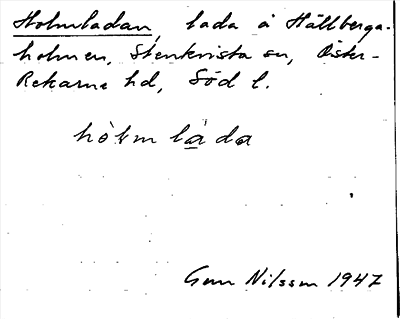 Holmladan, lada å Hällberga-
holmen, Stenkvista sn, Öster-
Rekarne hd, Söd l.
hòlmlada
Gun Nilsson 1947